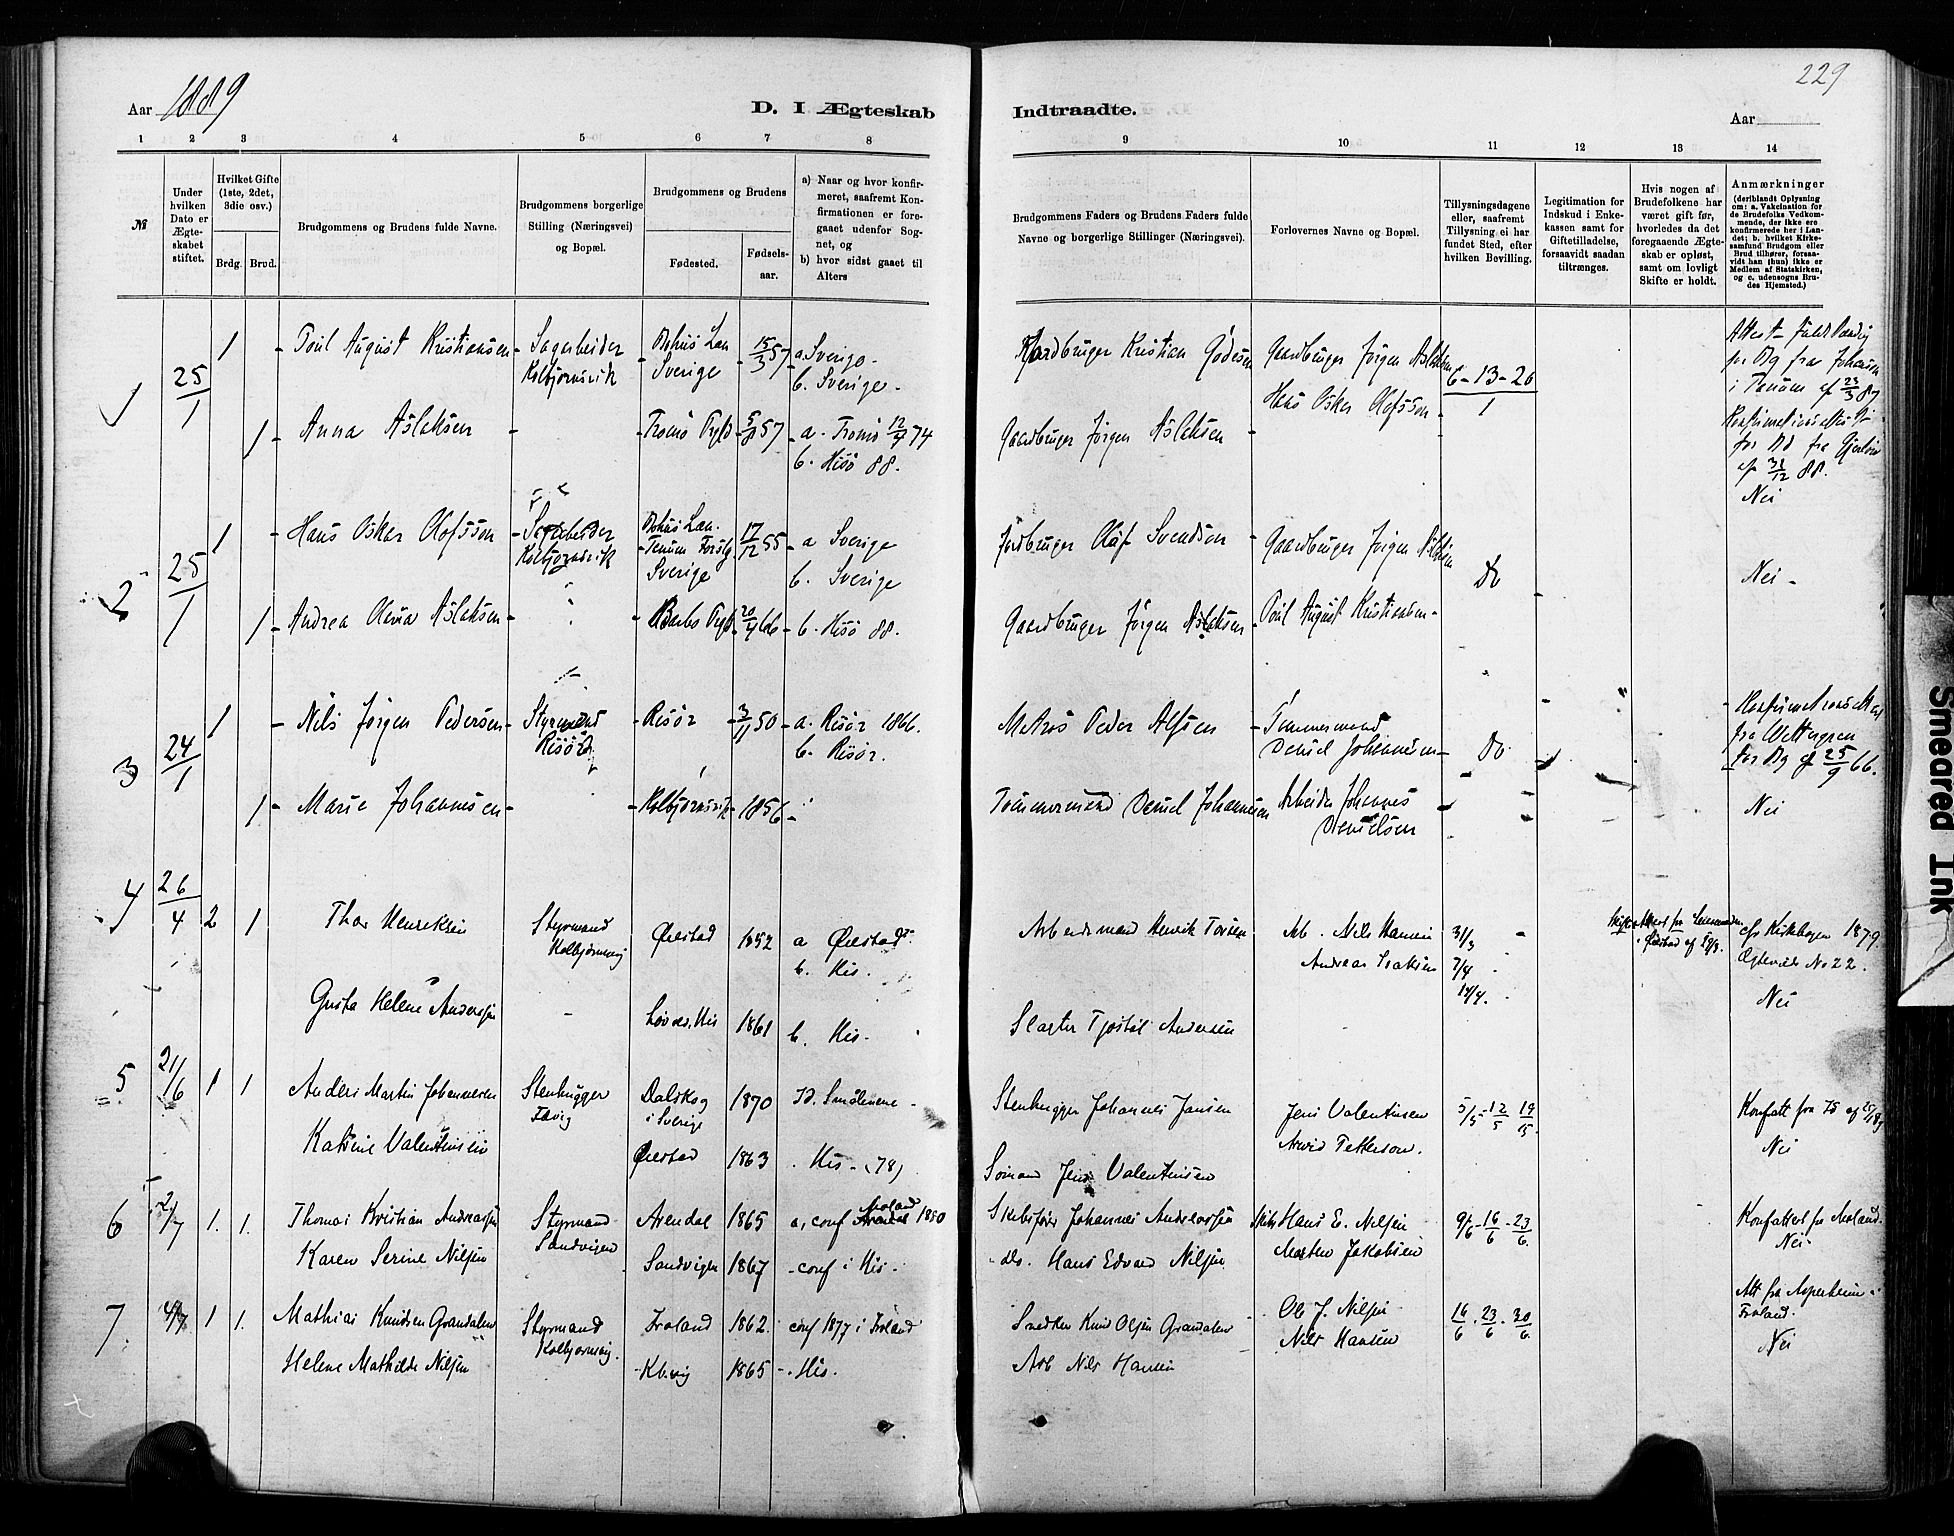 Aar 1889
D. I Ægteskab
Indtraadte.
229
Aar
1 2 3 4 5 6 7 8
9 10 11 12 13 14
№
Under hvilken Dato er Ægteskabet stiftet.
Hvilket Gifte (1ste, 2det, 3die osv.)
Brdg. Brud.
Brudgommens og Brudens fulde Navne.
Brudgommens borgerlige Stilling (Næringsvei) og Bopæl.
Brudgommens og Brudens
Fødested.
Fødsels-aar.
a) Naar og hvor konfirmeret, saafremt Konfirmationen er foregaaet udenfor Sognet, og
b) hvor sidst gaaet til Alters
Brudgommens Faders og Brudens Faders fulde Navne og borgerlige Stillinger (Næringsvei).
Forlovernes Navne og Bopæl.
Tillysningsdagene eller, saafremt Tillysning ei har fundet Sted, efter hvilken Bevilling.
Legitimation for Indskud i Enkekassen samt for Giftetilladelse, forsaavidt saadan tiltrænges.
Hvis nogen af Brudefolkene har været gift før, hvorledes da det foregaaende Ægteskab er opløst, samt om lovligt Skifte er holdt.
Anmærkninger (deriblandt Oplysning om: a. Vakcination for de Brudefolks Vedkommende, der ikke ere konfirmerede her i Landet; b. hvilket Kirkesamfund Brudgom eller Brud tilhører, forsaavidt han (hun) ikke er Medlem af Statskirken, og c. udensogns Brudes Hjemsted.)
1 25/1 1 Poul August Kristiansen Sagarbeider Kolbjørnsvik Bohus Lan Sverige 15/3 57 a. Sverige b. Sverige
Gaardbruger Jørgen Aslaksen 6-13-20/1
Hans Oskar Olofsson
1 Anna Aslaksen Tromø 5/8 57 a. Tromø 74 b. Hisø 88.
Gaardbruger Jørgen Aslaksen
Nei
2 25/1 1 Hans Oskar Olofsson Sagarbeider Kolbjørnsvik Bohus Lan. Sverige 17/12 55 a Sverige b. Sverige
Jordbruger Olof Svendsen Gaardbruger Jørgen Aslaksen Do Nei
1 Andrea Olena Aslaksen Barbo 20/4 66 b. Hisø 88.
Gaardbruger Jørgen Aslaksen Poul August Kristiansen
3 24/1 1 Nils Jørgen Pedersen Styrmand Risør Risør 3/11 50 a. Risør 1866. b. Risør.
Matros Peder Tømmermand Daniel Johannesen Do
for Bg af 25/9 66.
1 Marie Johannesen Kolbjørnsvik 1856
Tømmermand Daniel Johannesen Arbeider Johannes Danielsen Nei
4 26/4 2 1 Thor Henriksen Styrmand Kolbjørnsvig Øiestad 1852 a Øiestad b. His.
Arbeidsmand Henrik Arb. Nils Hansen 31/3
Andreas Isaksen 7/4
14/4.
cfr Kirkebogen 1879. Ægteviede No 22.
Helene Andersen His 1861 b. His.
Tjøstol Andersen Nei
5 21/6 1 1 Anders Martin Johannesen Stenhugger Dalskog i Sverige 1870 Id. Smålenene
Stenhugger Johannes Jansen Jens Valentinsen 5/5 - 12/5 19/5.
Katrine Valentinsen Øiestad 1863 His (78)
Sømand Jens Valentinsen Arvid Petterson. Nei
6 2/7 1. 1. Thomas Kristian Andreassen Styrmand Sandvigen Arendal 1865 a, conf Moland 1880
Skibsfører Johannes Andreassen Hans E. Nilsen 9/6 - 16/6 - 23/6.
Konfattest fra Moland. Nei
Karen Serine Nilsen Sandvigen 1867 conf i His
do. Hans Edvard Nilsen Morten Jakobsen
7 4/7 1 1. Mathias Knudsen Grandalen Styrmand Kolbjørnsvig. Froland 1862. conf 1877 i Froland
Snedker Knud Olsen Grandalen Ole J. Nilsen 16/6 . 23/6 . 30/6.
Froland Nei
Helene Mathilde Nilsen Kb.vig 1865 His.
Arb Nils Hansen Nils Hansen
Smeared Ink